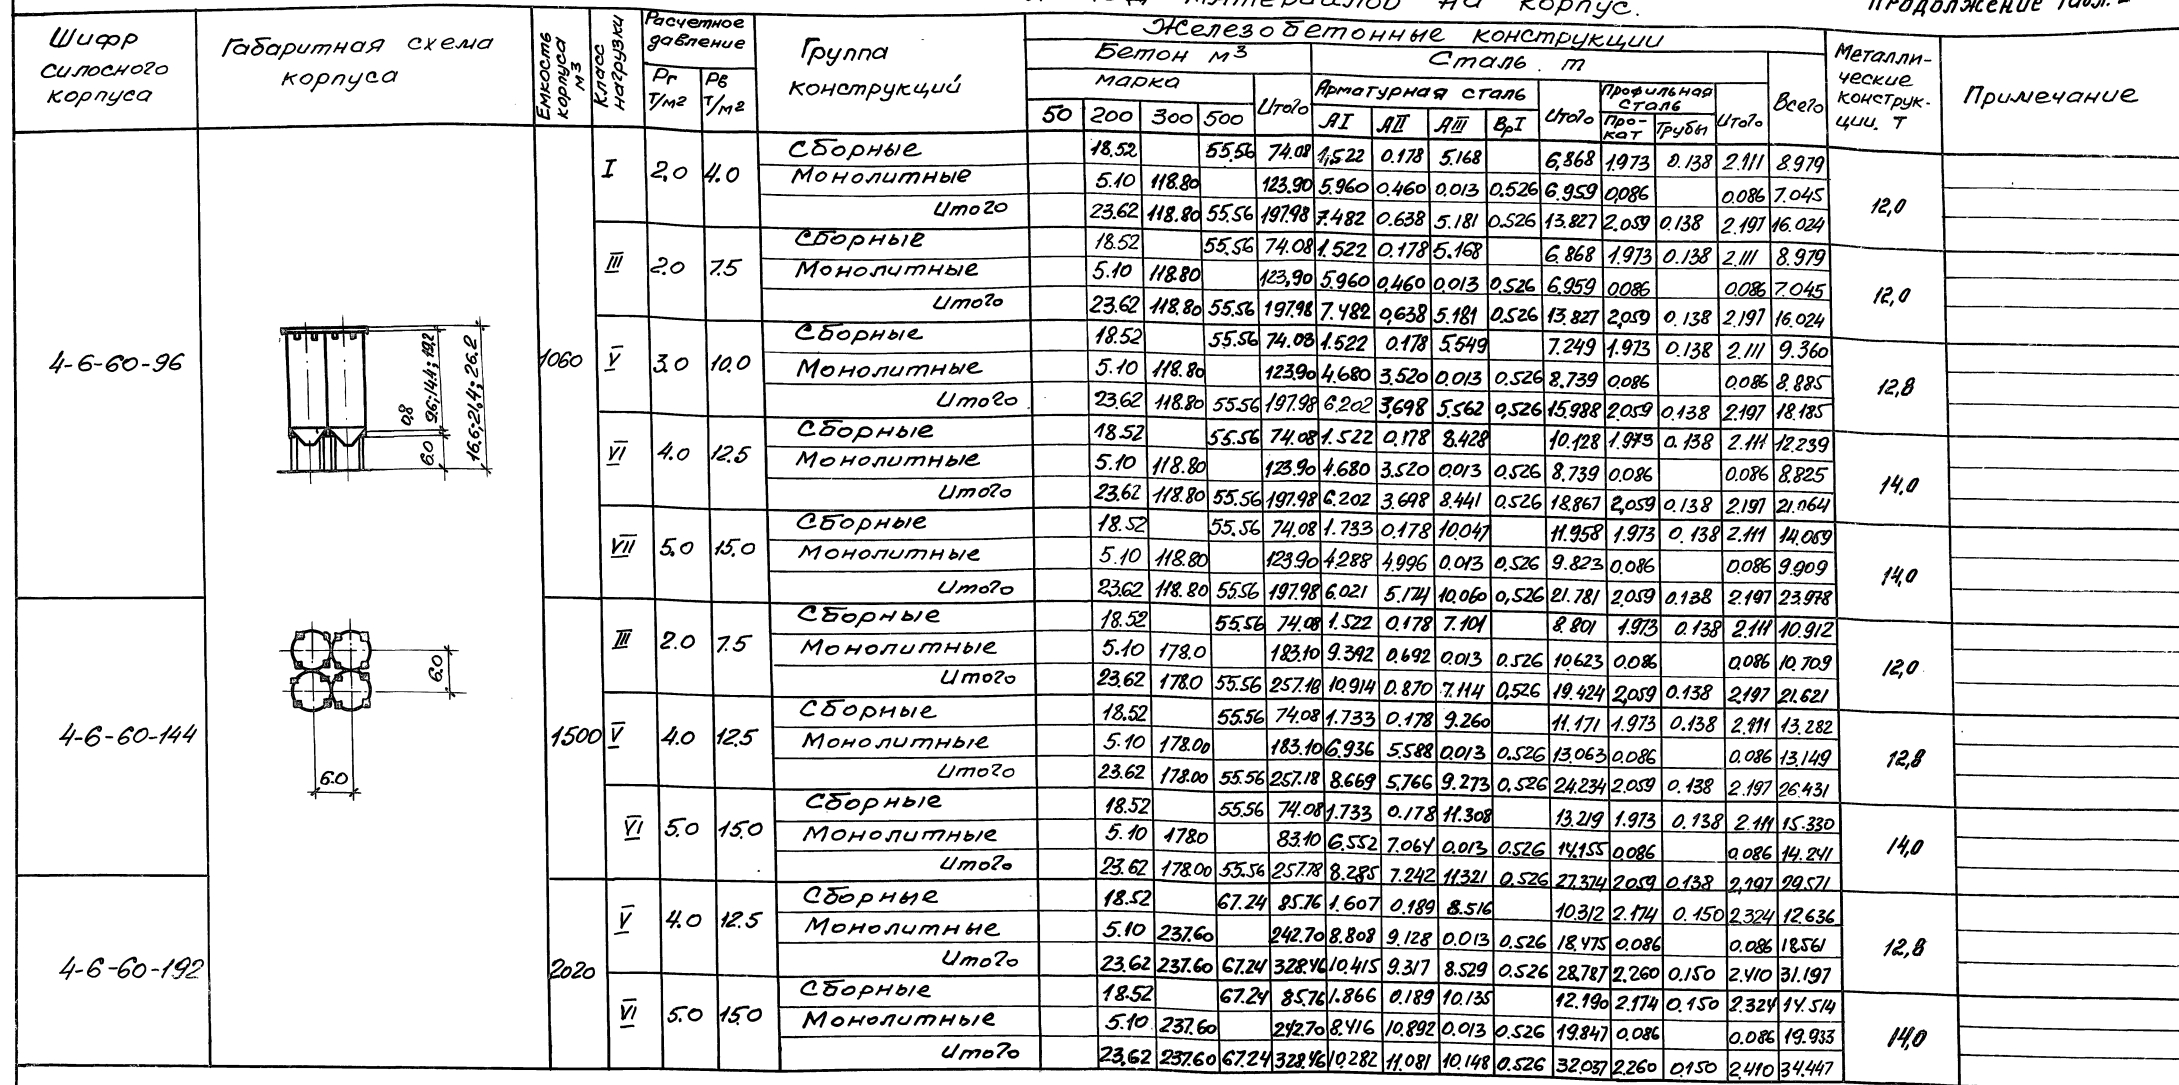 материалов на корпус.
Продолжение табл.
Шифр силосного корпуса | Габаритная схема корпуса | Емкость корпуса м³ | Класс нагрузки | Расчетное давление | Группа конструкций | Железобетонные конструкции | Металлические конструкции. Т | Примечание
Pг Т/м2 | Pв Т/м2 | Бетон м³ | Сталь. т | Всего
марка | Итого | Арматурная сталь | Итого | Профильная сталь | Итого
50 | 200 | 300 | 500 | AI | AII | AIII | BpI | Прокат | Трубы
4-6-60-96 | 1060
I | 2,0 | 4.0 | Сборные | 18.52 | 55.56 | 74.08 | 1,522 | 0.178 | 5.168 | 6,868 | 1973 | 0.138 | 2.111 | 8.979 | 12,0
Монолитные | 5.10 | 118.80 | 123.90 | 5.960 | 0.460 | 0.013 | 0.526 | 6.959 | 0,086 | 0.086 | 7.045
Итого | 23.62 | 118.80 | 55.56 | 197.98 | 7.482 | 0.638 | 5.181 | 0,526 | 13.827 | 2.059 | 0.138 | 2.197 | 16.024
III | 2.0 | 7.5 | Сборные | 18.52 | 55.56 | 74.08 | 1.522 | 0.178 | 5.168 | 6.868 | 1.973 | 0.138 | 2.111 | 8.979 | 12,0
Монолитные | 5.10 | 118.80 | 123,90 | 5.960 | 0,460 | 0.013 | 0,526 | 6.959 | 0086 | 0.086 | 7.045
Итого | 23.62 | 118.80 | 55.56 | 197.98 | 7.482 | 0,638 | 5.181 | 0.526 | 13.827 | 2,059 | 0.138 | 2.197 | 16.024
V | 3.0 | 10.0 | Сборные | 18.52 | 55.56 | 74.08 | 1.522 | 0.178 | 5.549 | 7.249 | 1.973 | 0.138 | 2.111 | 9.360 | 12,8
Монолитные | 5.10 | 118.80 | 123.90 | 4.680 | 3.520 | 0.013 | 0.526 | 8.739 | 0.086 | 0.086 | 8.885
Итого | 23.62 | 118.80 | 55.56 | 197.98 | 6.202 | 3,698 | 5.562 | 0,526 | 15.988 | 2.059 | 0.138 | 2.197 | 18.185
VI | 4.0 | 12.5 | Сборные | 18.52 | 55.56 | 74.08 | 1.522 | 0.178 | 8.428 | 10.128 | 1.973 | 0.138 | 2.111 | 12.239 | 14.0
Монолитные | 5.10 | 118.80 | 123.90 | 4.680 | 3.520 | 0.013 | 0.526 | 8.739 | 0.086 | 0.086 | 8.825
Итого | 23.62 | 118.80 | 55.56 | 197.98 | 6.202 | 3.698 | 8.441 | 0.526 | 18.867 | 2,059 | 0.138 | 2.197 | 21.064
VII | 5.0 | 15.0 | Сборные | 18.52 | 55.56 | 74.08 | 1.733 | 0.178 | 10.047 | 11.958 | 1.973 | 0.138 | 2.111 | 14.069 | 14,0
Монолитные | 5.10 | 118.80 | 123.90 | 4.288 | 4.996 | 0.013 | 0.526 | 9.823 | 0.086 | 0.086 | 9.909
Итого | 23.62 | 118.80 | 55.56 | 197.98 | 6.021 | 5.174 | 10.060 | 0,526 | 21.781 | 2.059 | 0.138 | 2.197 | 23.978
4-6-60-144 | 1500
III | 2.0 | 7.5 | Сборные | 18.52 | 55.56 | 74.08 | 1.522 | 0.178 | 7.101 | 8.801 | 1.973 | 0.138 | 2.111 | 10.912 | 12,0
Монолитные | 5.10 | 178.0 | 183.10 | 9.392 | 0.692 | 0.013 | 0.526 | 10.623 | 0.086 | 0,086 | 10.709
Итого | 23.62 | 178.0 | 55.56 | 257.18 | 10.914 | 0.870 | 7.114 | 0,526 | 19.424 | 2,059 | 0.138 | 2.197 | 21.621
V | 4.0 | 12.5 | Сборные | 18.52 | 55.56 | 74.08 | 1.733 | 0.178 | 9.260 | 11.171 | 1.973 | 0.138 | 2.111 | 13.282 | 12,8
Монолитные | 5.10 | 178.00 | 183.10 | 6.936 | 5.588 | 0.013 | 0.526 | 13.063 | 0.086 | 0.086 | 13.149
Итого | 23.62 | 178.00 | 55.56 | 257.18 | 8.669 | 5.766 | 9.273 | 0.526 | 24.234 | 2.059 | 0.138 | 2.197 | 26.431
VI | 5.0 | 15.0 | Сборные | 18.52 | 55.56 | 74.08 | 1.733 | 0.178 | 11.308 | 13.219 | 1.973 | 0.138 | 2.111 | 15.330 | 14,0
Монолитные | 5.10 | 178.0 | 83.10 | 6.552 | 7.064 | 0.013 | 0.526 | 14.155 | 0.086 | 0.086 | 14.241
Итого | 23.62 | 178.00 | 55.56 | 257.78 | 8.285 | 7.242 | 11.321 | 0.526 | 27.374 | 2.059 | 0.138 | 2,197 | 29.571
4-6-60-192 | 2020
V | 4.0 | 12.5 | Сборные | 18.52 | 67.24 | 85.76 | 1.607 | 0.189 | 8.516 | 10.312 | 2.174 | 0.150 | 2.324 | 12.636 | 12,8
Монолитные | 5.10 | 237.60 | 242.70 | 8.808 | 9.128 | 0.013 | 0.526 | 18.475 | 0.086 | 0.086 | 18.561
Итого | 23.62 | 237.60 | 67.24 | 328.46 | 10.415 | 9.317 | 8.529 | 0.526 | 28.787 | 2.260 | 0.150 | 2.410 | 31.197
VI | 5.0 | 15.0 | Сборные | 18.52 | 67.24 | 85.76 | 1.866 | 0.189 | 10.135 | 12.190 | 2.174 | 0.150 | 2.324 | 14.514 | 14,0
Монолитные | 5.10 | 237.60 | 242.70 | 8.416 | 10.892 | 0.013 | 0.526 | 19.847 | 0.086 | 0.086 | 19.933
Итого | 23,62 | 237.60 | 67.24 | 328.46 | 10.282 | 11.081 | 10.148 | 0.526 | 32.037 | 2.260 | 0.150 | 2.410 | 34.447
0.8
9.6; 14.4; 19.2
6.0
16.6; 21.4; 26.2
6.0
6.0